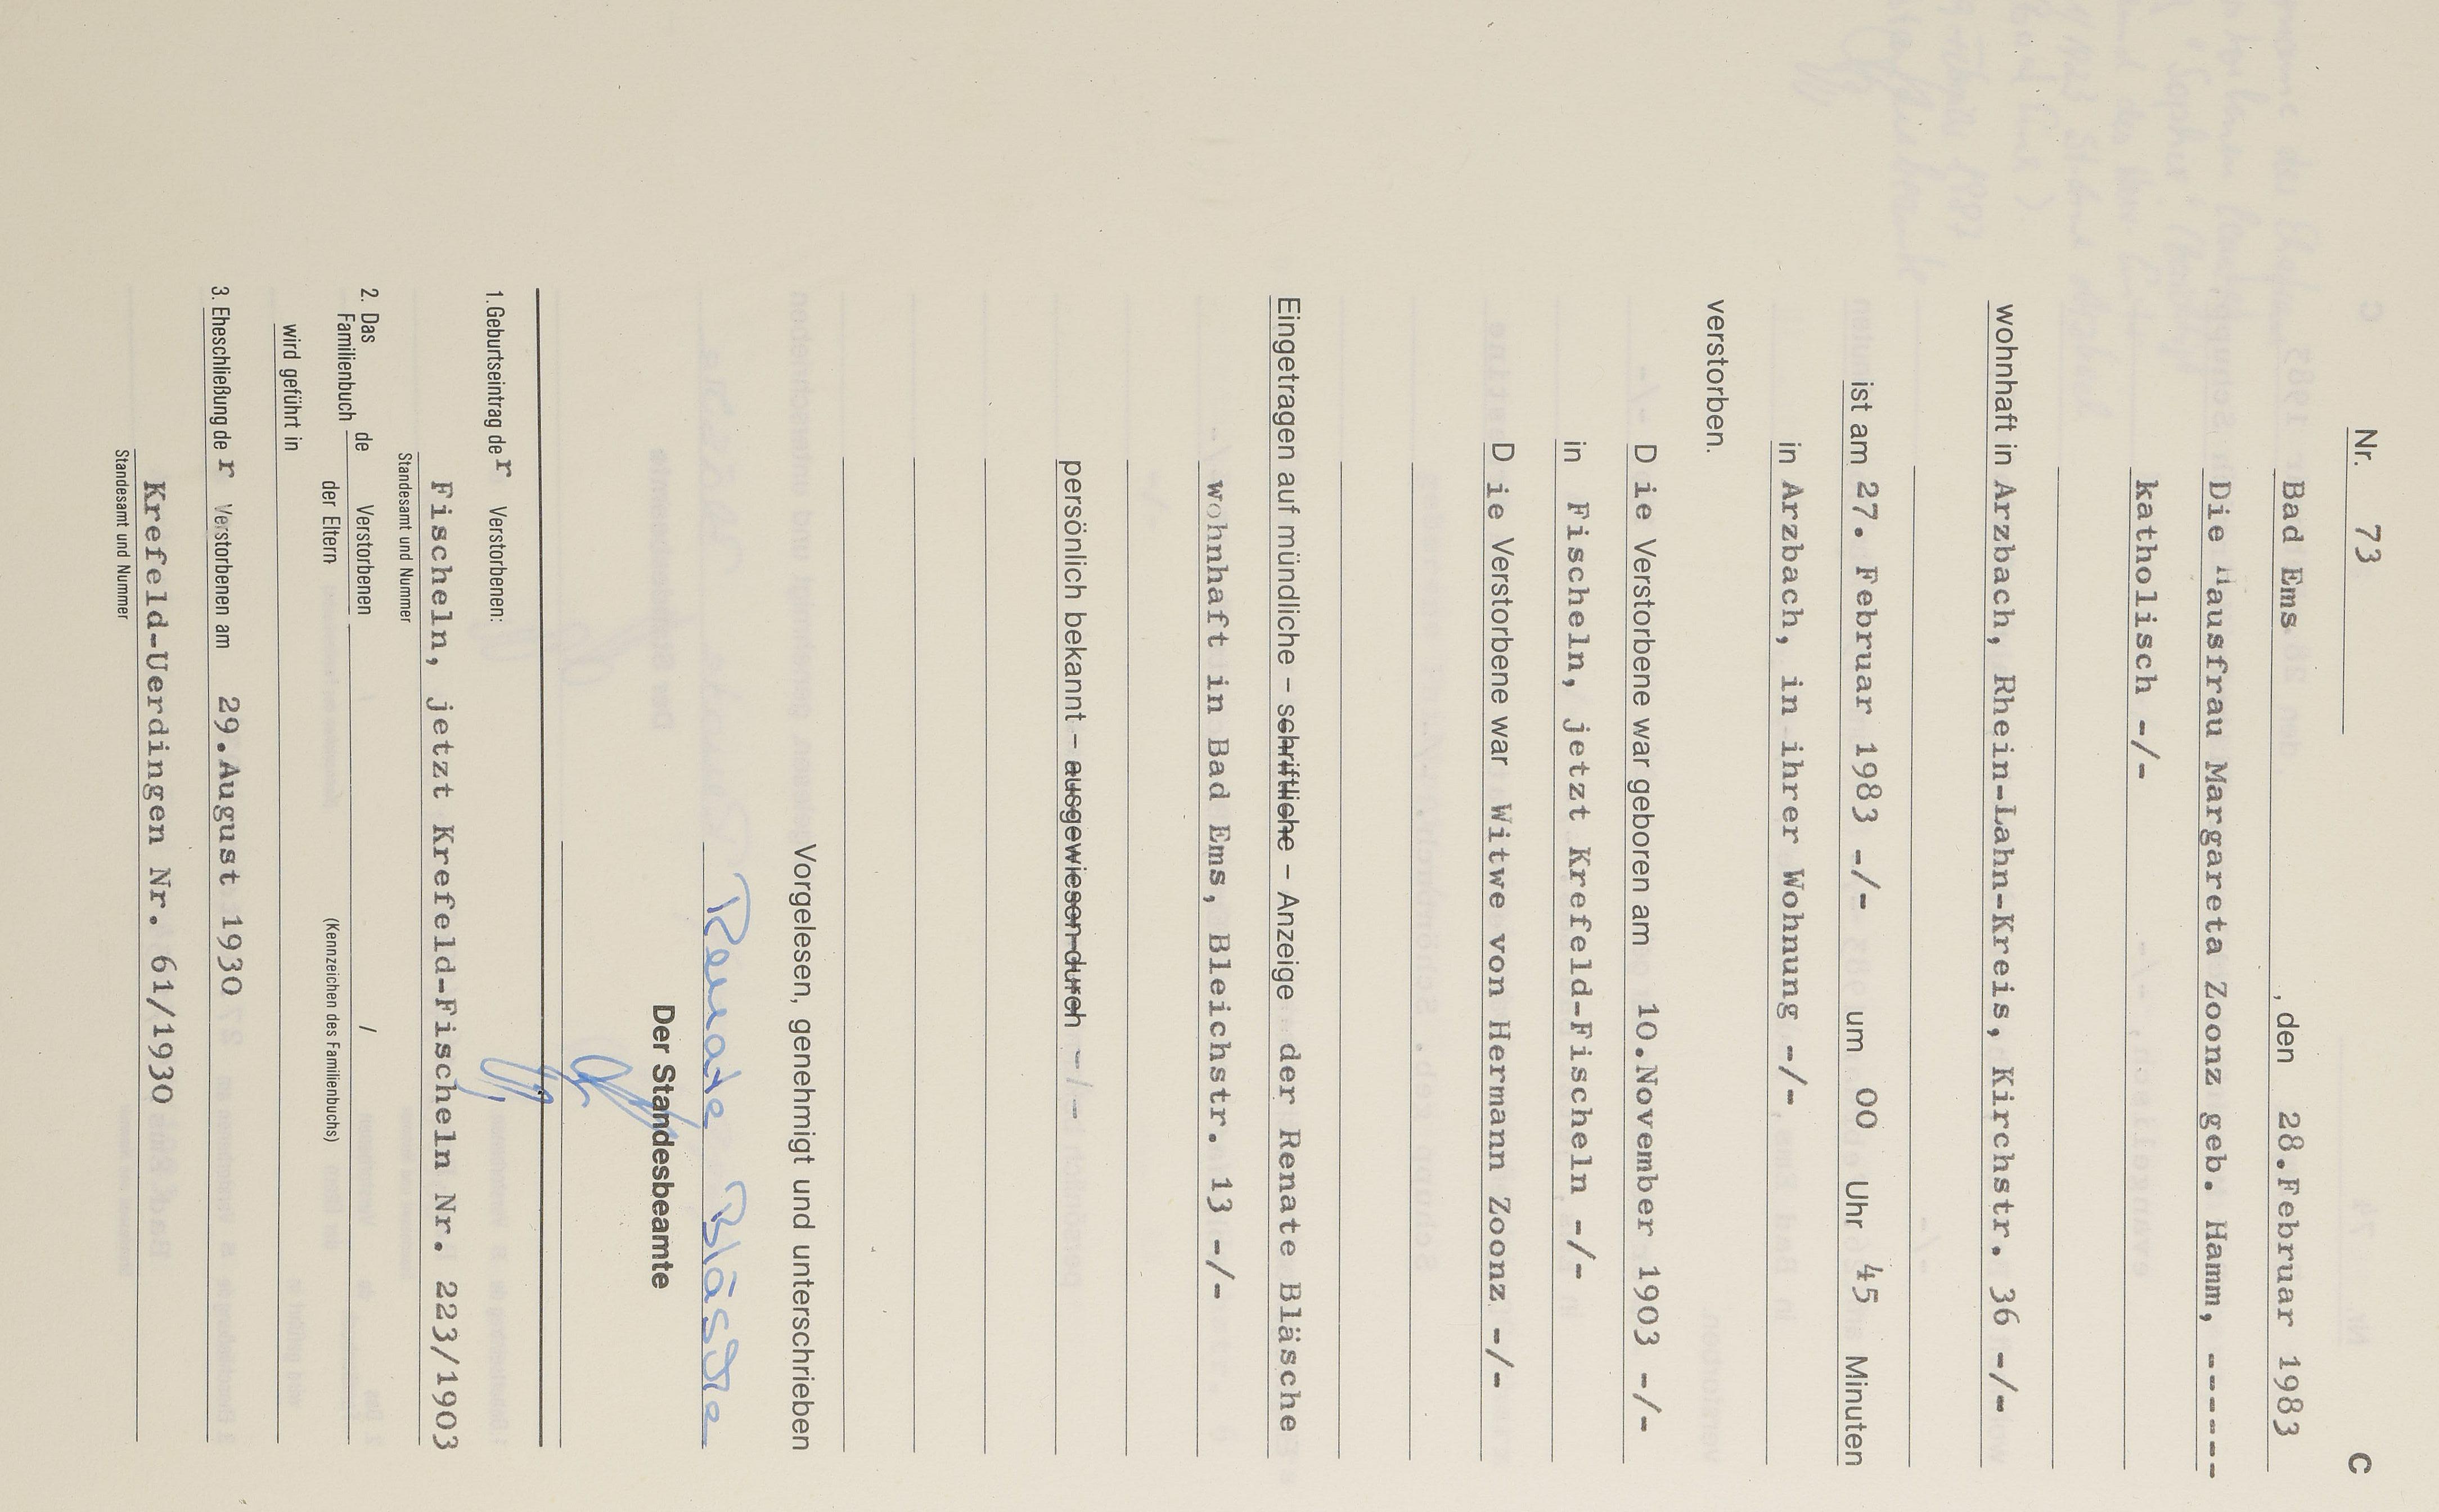 Nr. 73 C
Bad Ems , den 28.Februar 1983
Die Hausfrau Margareta Zoonz geb. Hamm, ------
katholisch -/-
wohnhaft in Arzbach, Rhein-Lahn-Kreis, Kirchstr. 36 -/-
ist am 27. Februar 1983 -/- um 00 Uhr 45 Minuten
in Arzbach, in ihrer Wohnung -/-
verstorben.
Die Verstorbene war geboren am 10.November 1903 -/-
in Fischeln, jetzt Krefeld-Fischeln -/-
Die Verstorbene war Witwe von Hermann Zoonz -/-
Eingetragen auf mündliche – schriftliche – Anzeige der Renate Bläsche
wohnhaft in Bad Ems, Bleichstr. 13 -/-
persönlich bekannt – ausgewiesen durch -/-
Vorgelesen, genehmigt und unterschrieben
Renate Bläsche
Der Standesbeamte
1.Geburtseintrag der Verstorbenen:
Fischeln, jetzt Krefeld-Fischeln Nr. 223/1903
Standesamt und Nummer
2. Das Familienbuch de Verstorbenen /
der Eltern (Kennzeichen des Familienbuchs)
wird geführt in
3. Eheschließung der Verstorbenen am 29.August 1930
Krefeld-Uerdingen Nr. 61/1930
Standesamt und Nummer